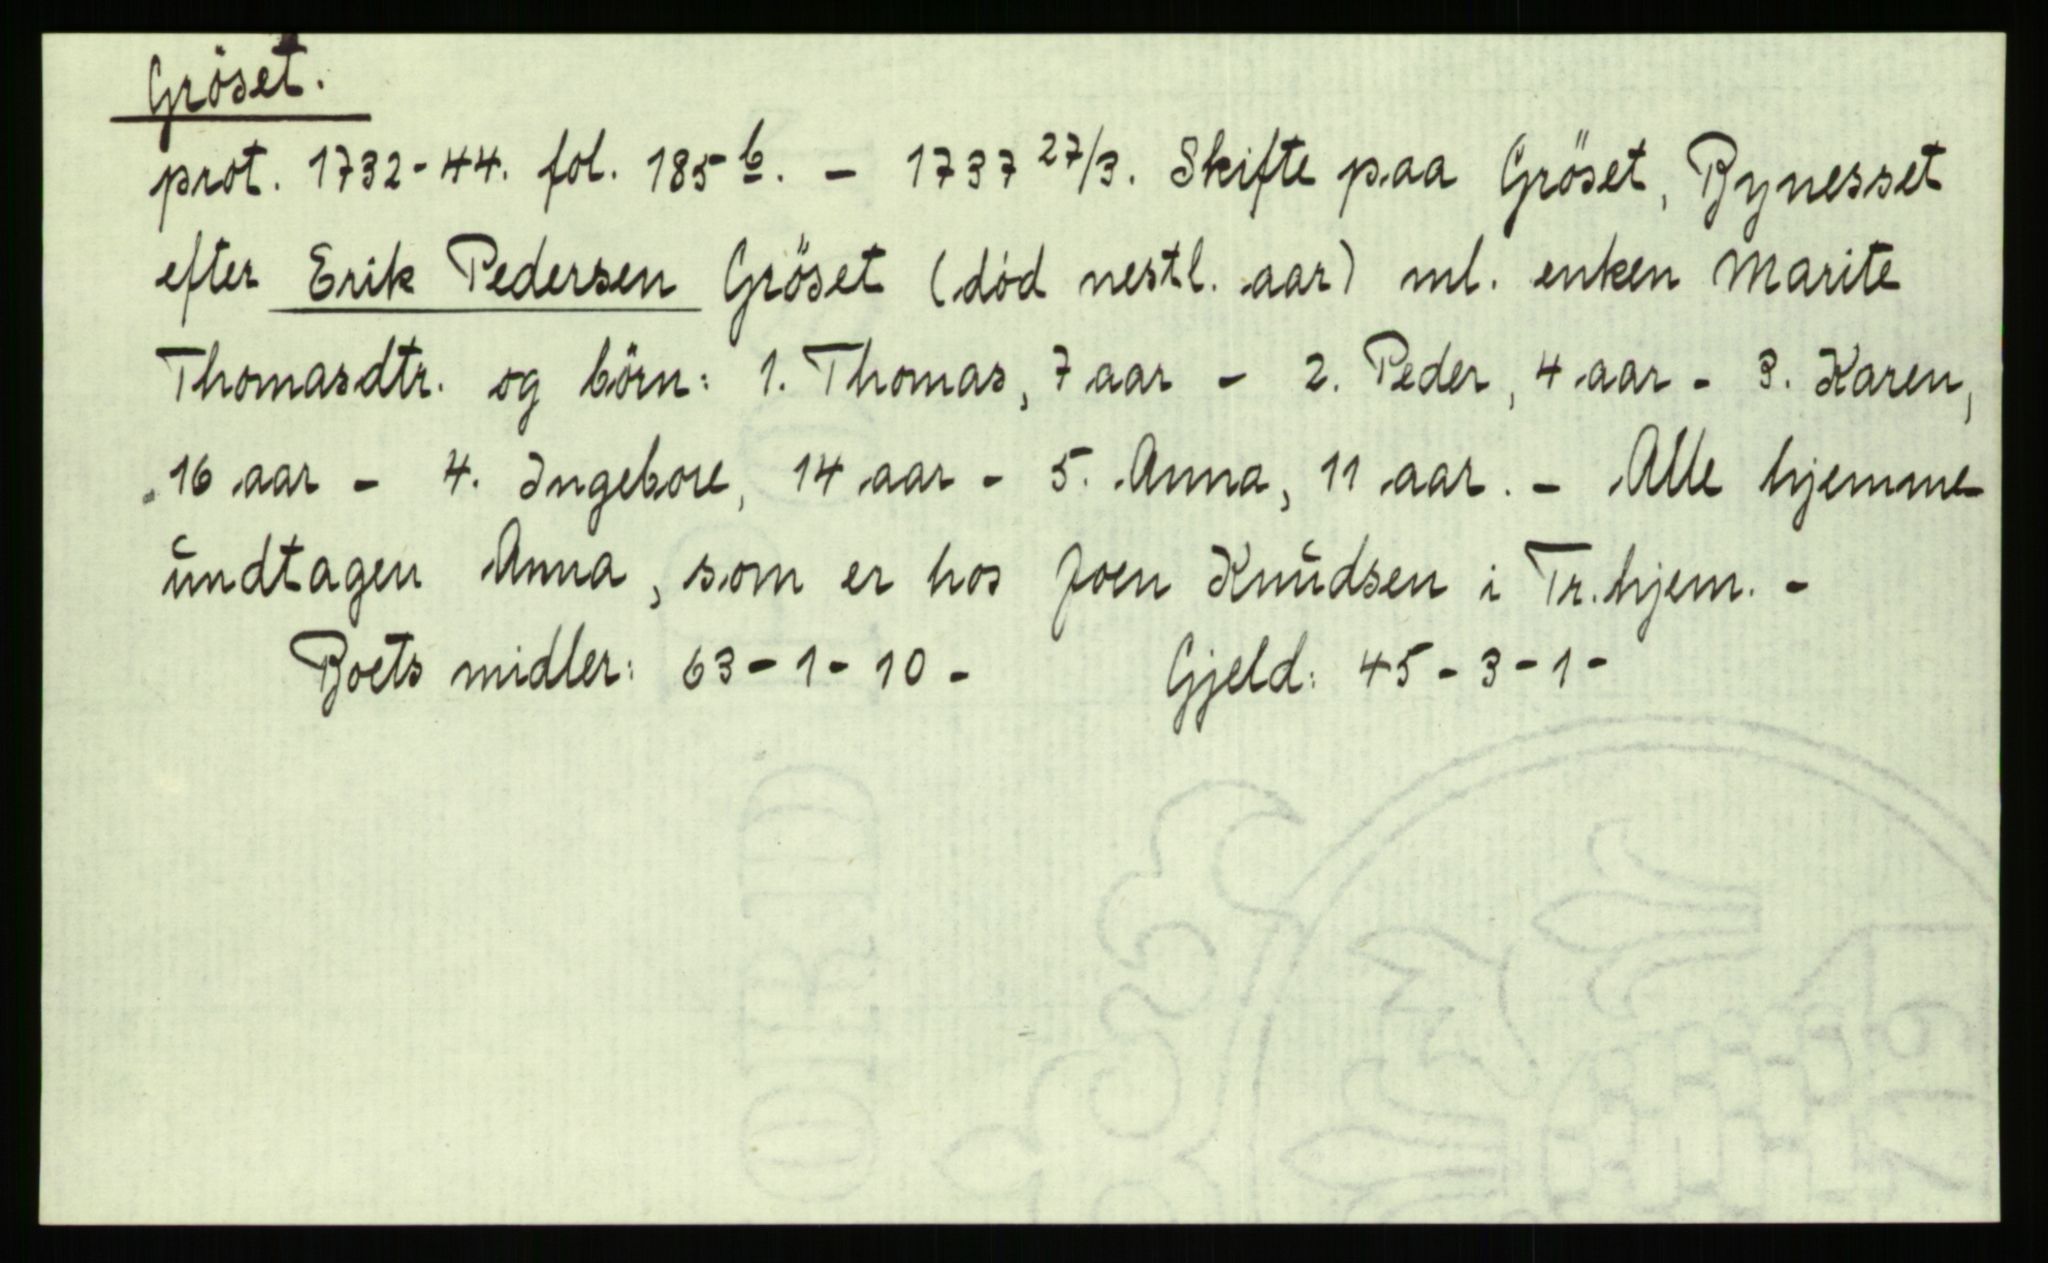 Gröset.
prot. 1732-44. fol. 185 b. - 1737 27/3. Skifte paa Gröset, Bynesset
efter Erik Pedersen Gröset (död nestl. aar) ml. enken Marite
Thomasdtr. og börn: 1. Thomas, 7 aar - 2. Peder, 4 aar - 3. Karen,
16 aar - 4. Ingebore, 14 aar - 5. Anna, 11 aar. - Alle hjemme
undtagen Anna, som er hos Joen Knudsen i Tr.hjem. -
Boets midler: 63-1-10- Gjeld: 45-3-1-